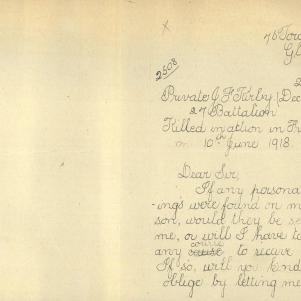 x
75 Tor
Gl
2508
2
Private J F Turby (Dec
27 Battalion
Killed in action in Fr
on 10th June 1918.
Dear Sir,
If any persona
ings were found on m
son, would they be se
me, or will I have to
any course to secure
If so, will you kind
oblige by letting me